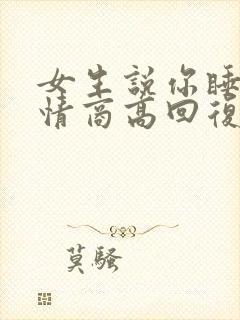 女生說你睡
情商高回復
莫騷